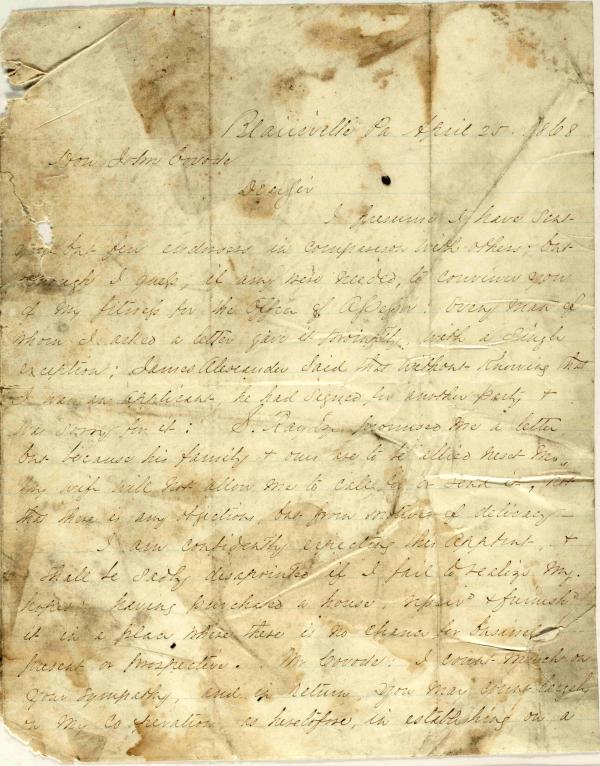 Blairsville Pa April 25. 1868
Hon John Covode
Dear Sir
I presume I have sent
you but few endorsers in comparison with others; but
enough I guess, if any were needed, to convince you
of my fitness for the Office of Assessor. Every man of
whom I asked a letter gave it promptly, with a single
exception; James Alexander said that without knowing that
I was an applicant, he had signed for another party &
was sorry for it: S. Ray promised me a letter
but because his family & ours are to be allied next
my wife will not allow me to call for or send it, not
that there is any objections, but from motives of delicacy—
I am confidently expecting this appoint, &
shall be sadly disappointed if I fail to realize my
hopes: having purchased a house, repair'd & furnish'd
it in a place where there is no chance for
present or prospective. Mr Covode: I count much on
your sympathy, and in return you may count largely
on my Co operation, as heretofore, in establishing on a